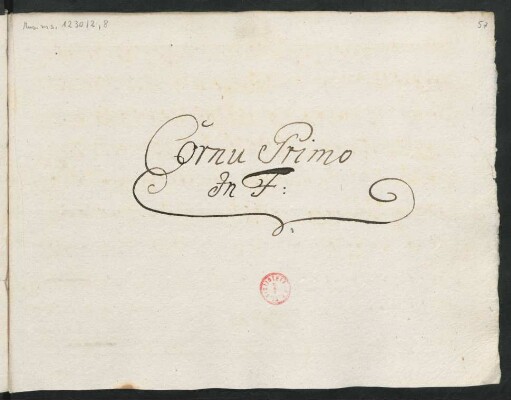 Mus. ms. 12301/2, 8
Cornu Primo
In F: